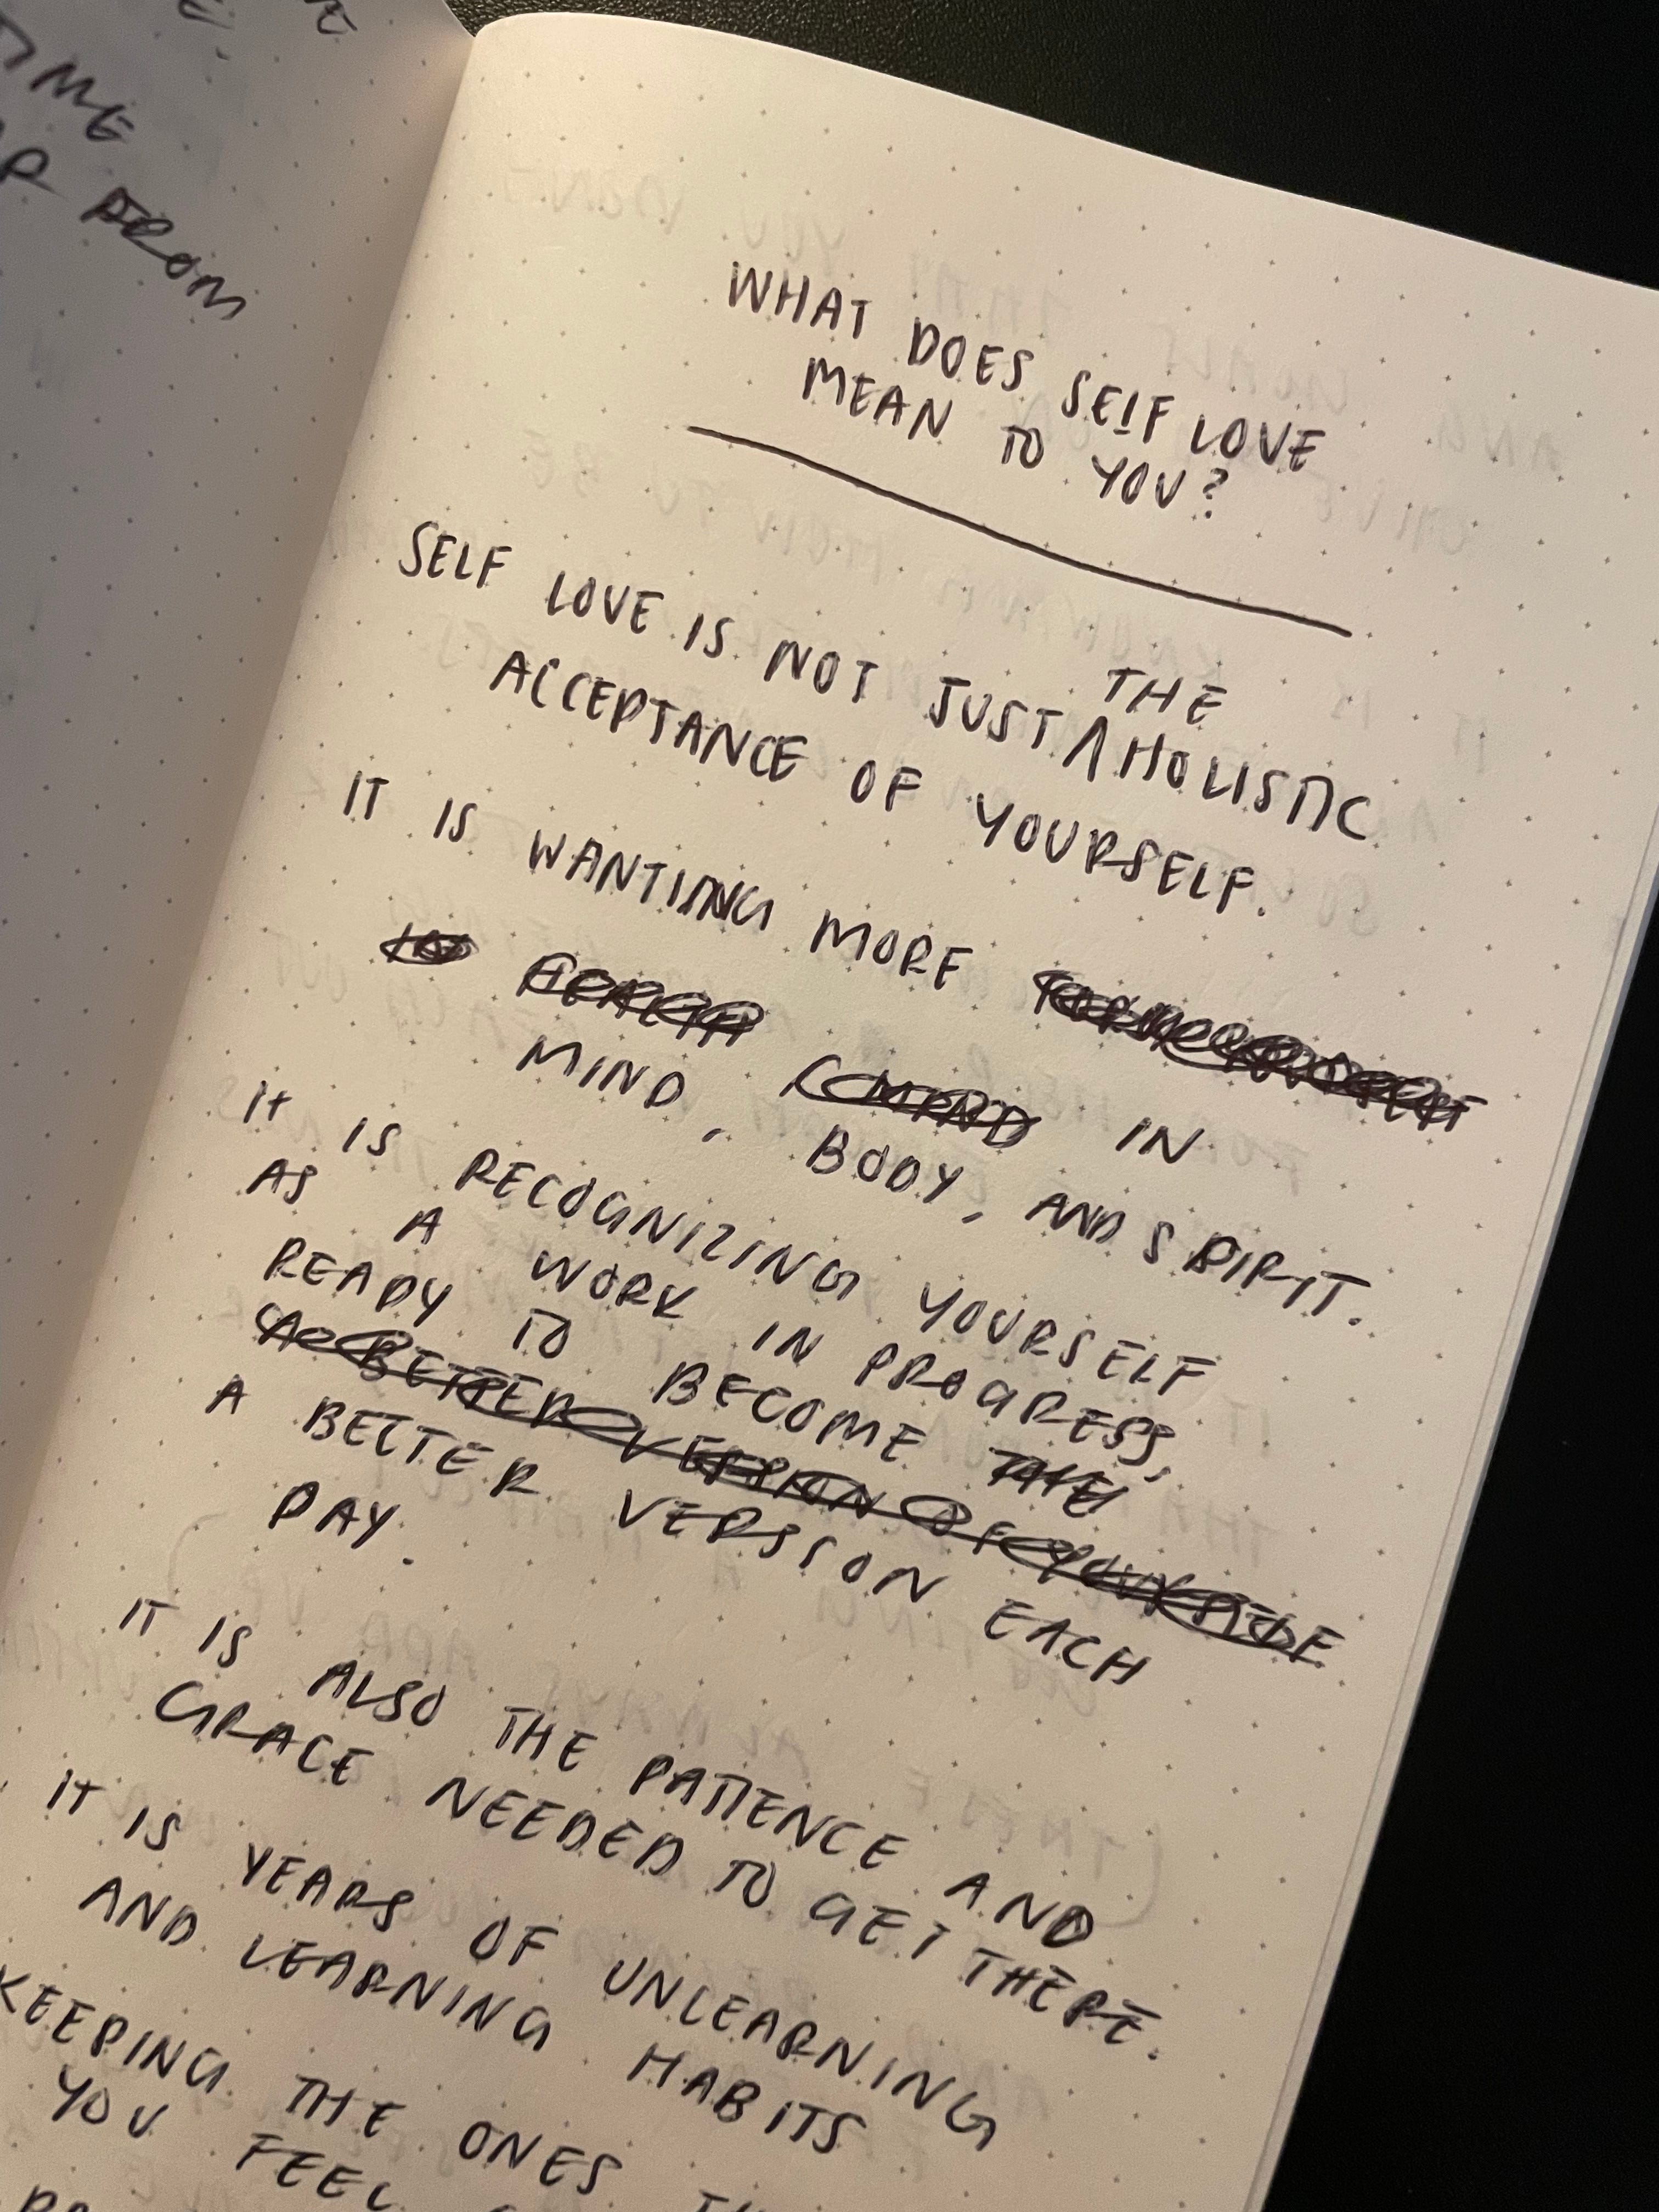 TIME
FROM
WHAT DOES SELF LOVE
MEAN TO YOU?
SELF LOVE IS NOT JUST THE HOLISTIC
ACCEPTANCE OF YOURSELF.
IT IS WANTING MORE
HEALTH MIND IN
MIND, BODY, AND SPIRIT.
It IS RECOGNIZING YOURSELF
AS A WORK IN PROGRESS,
READY TO BECOME THE
A BETTER VERSION OF YOURSELF
A BETTER VERSION EACH
DAY.
IT IS ALSO THE PATIENCE AND
GRACE NEEDED TO GET THERE.
It IS YEARS OF UNLEARNING
AND LEARNING HABITS
KEEPING THE ONES
YOU FEEL